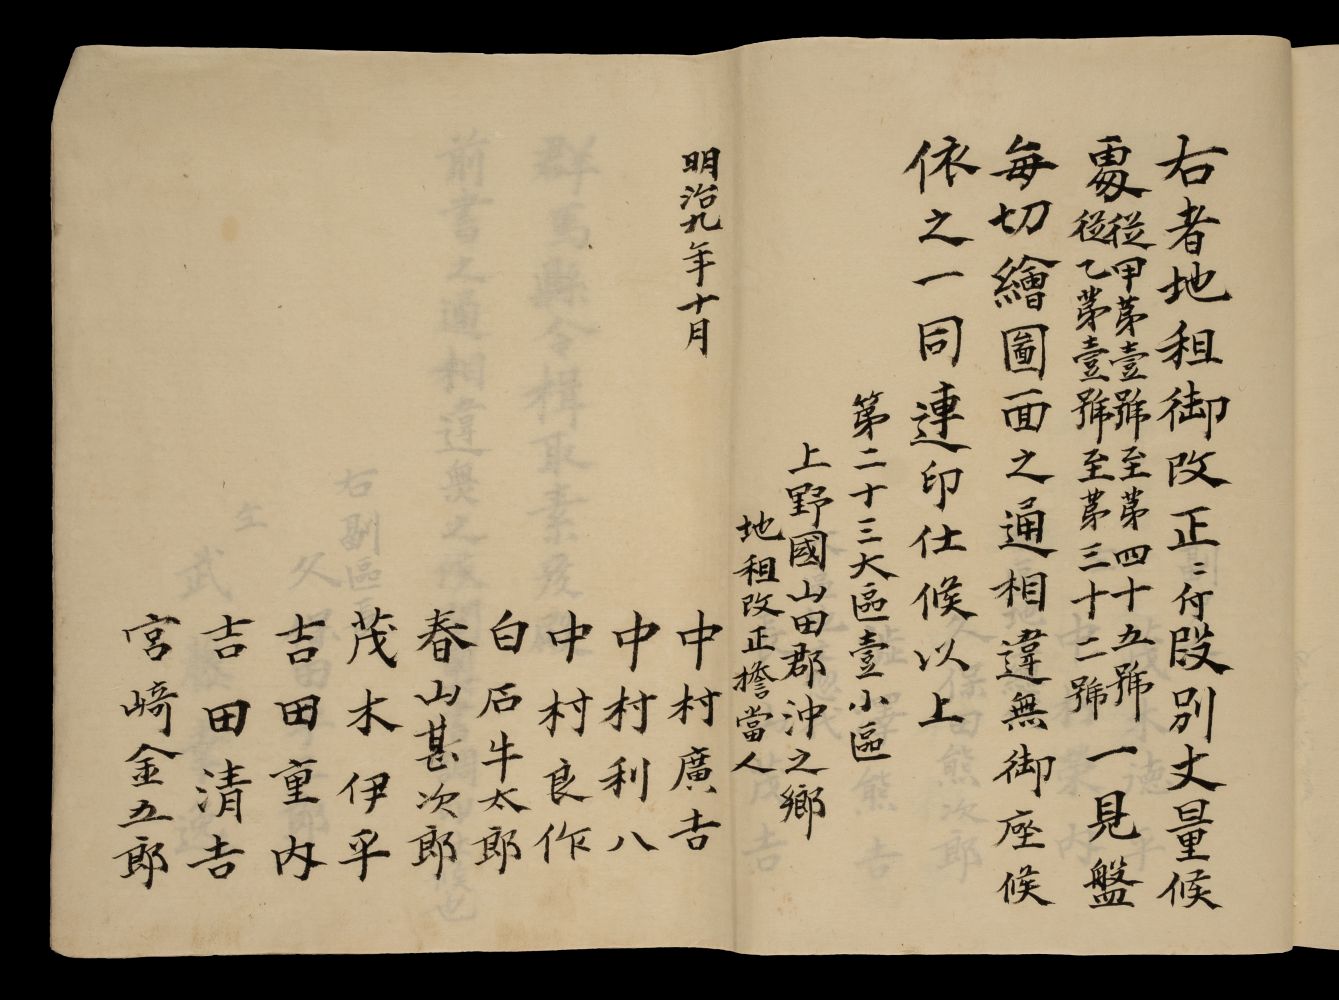 右者地租御改正ニ付段別丈量候
処従甲第壹號至第四十五號
従乙第壹號至第三十二號一見盤
毎切繪圖面之通相違無御座候
依之一同連印仕候以上
第二十三大區壹小區
上野國山田郡沖之郷
地租改正擔當人
明治九年十月
中村廣吉
中村利八
中村良作
白石牛太郎
春山甚次郎
茂木伊平
吉田重内
吉田清吉
宮崎金五郎